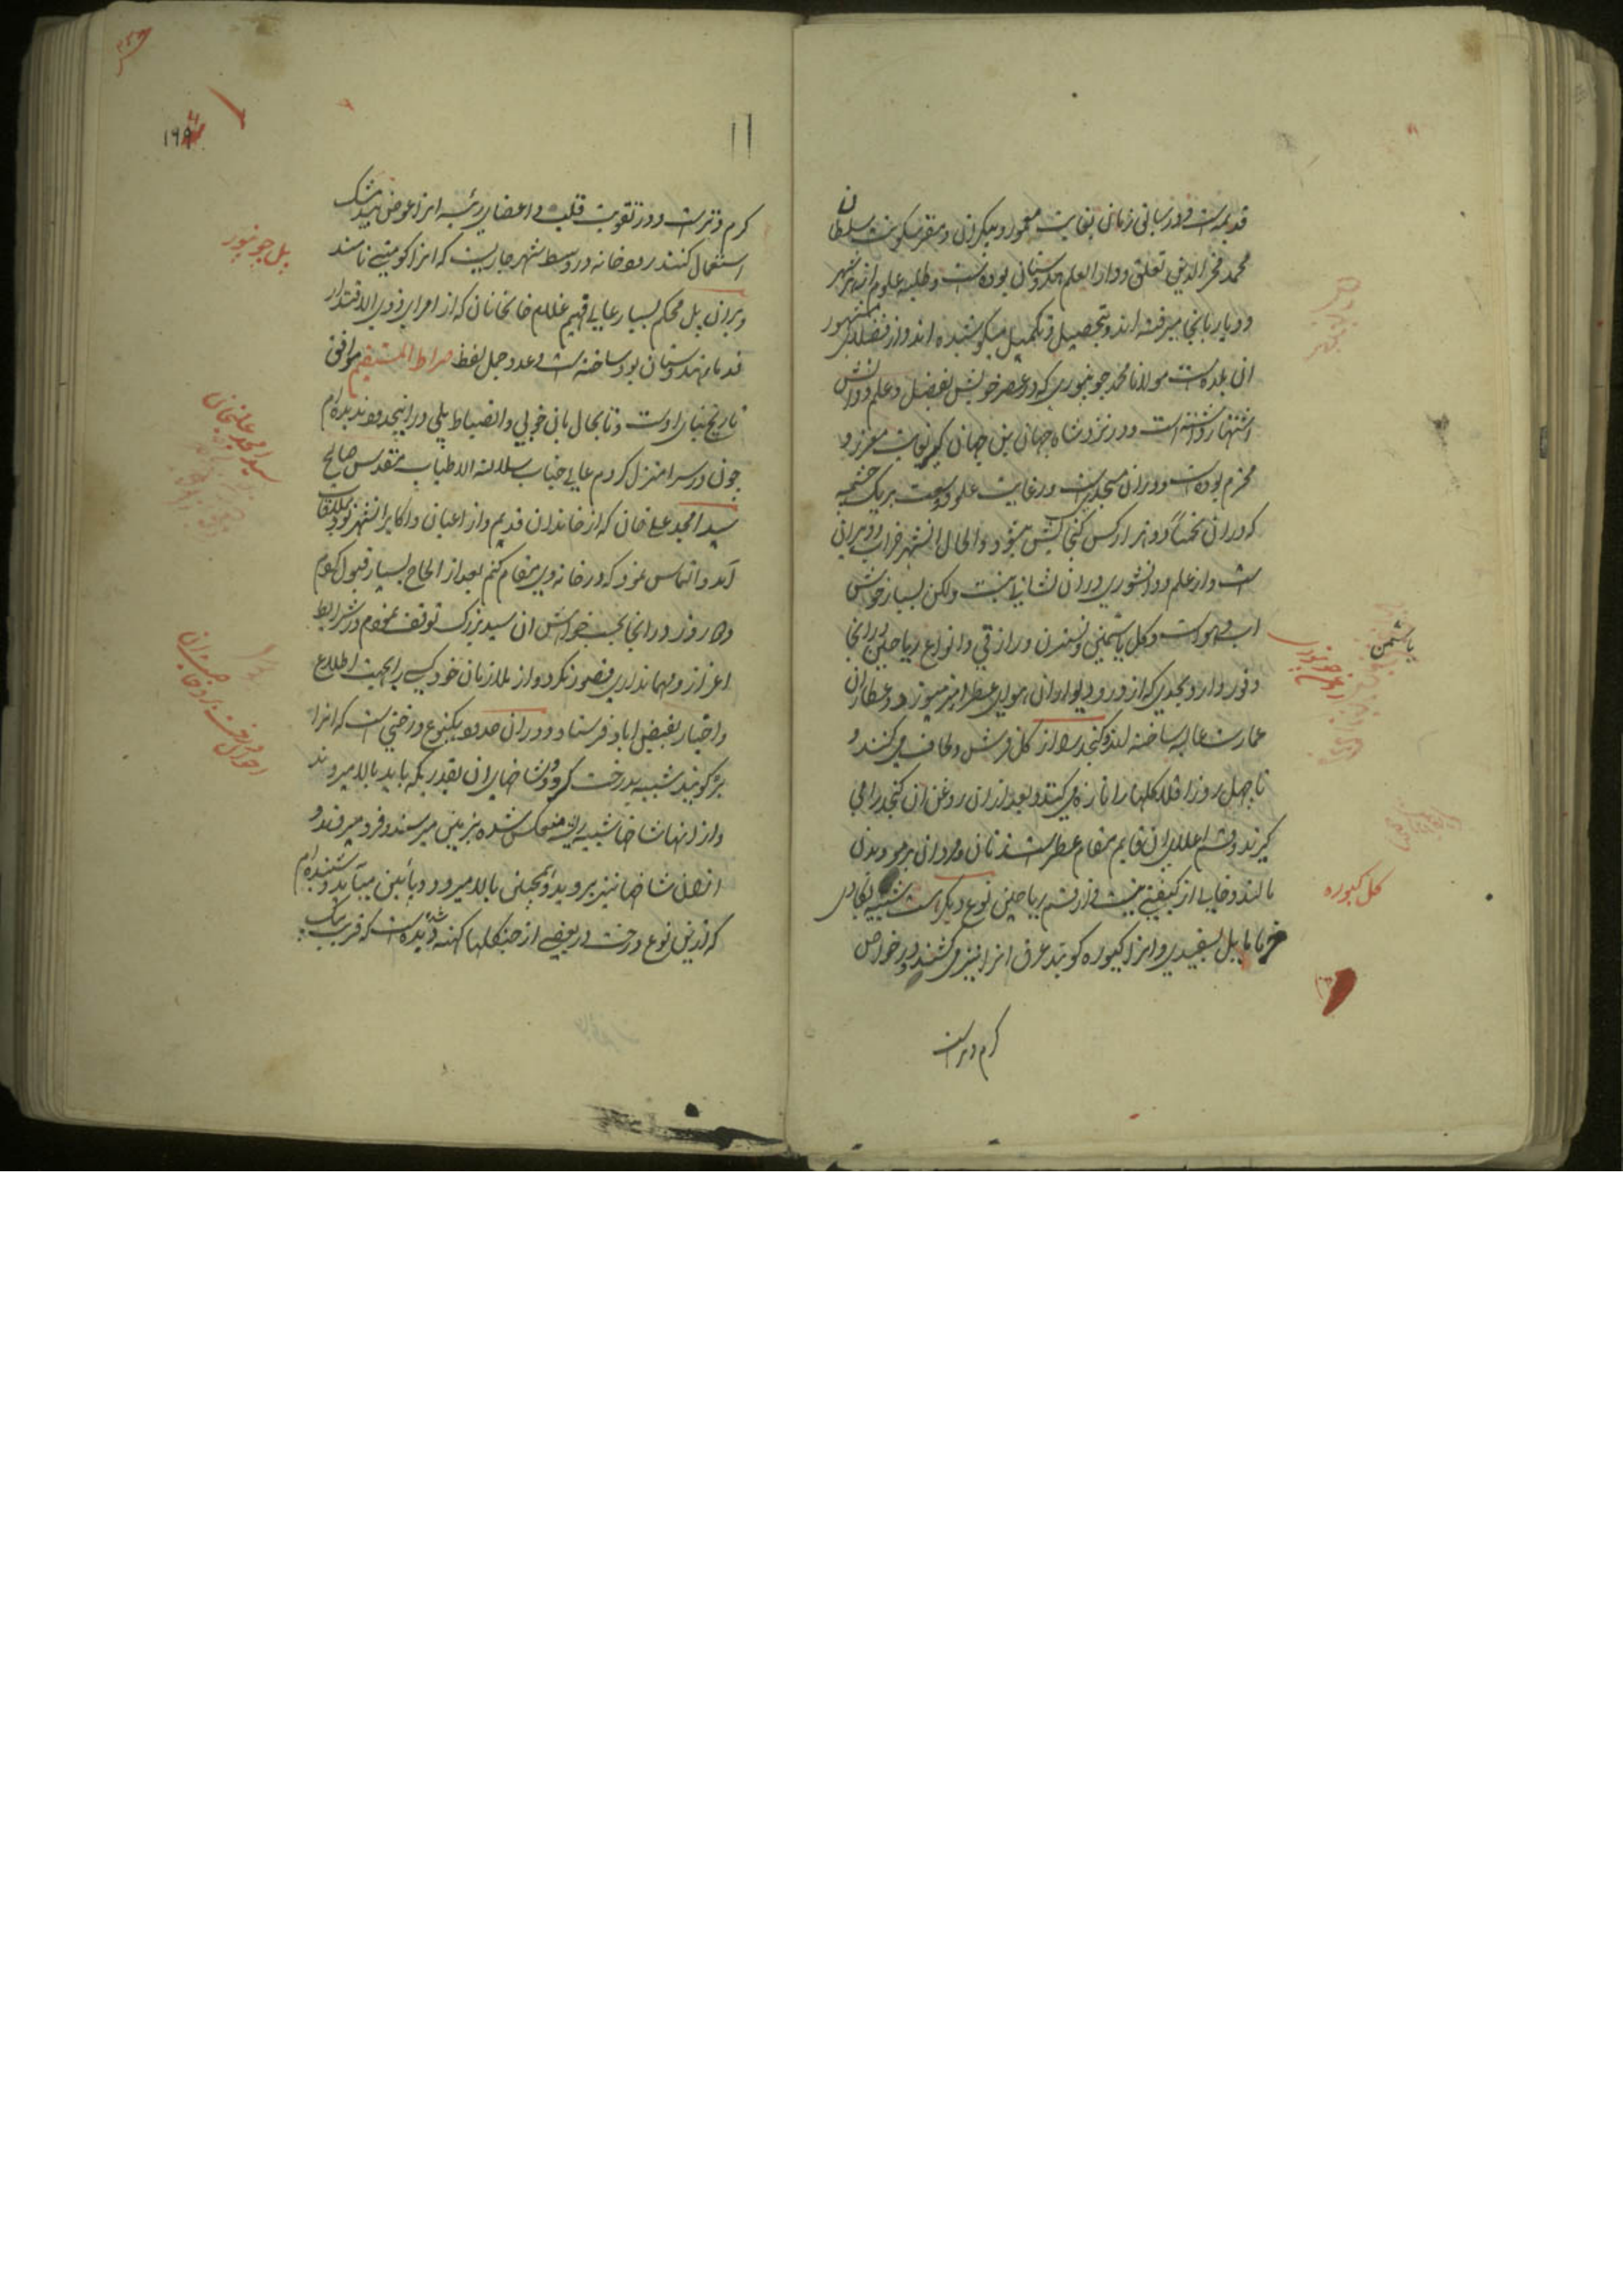 قدیمه است و در سابق زمان بغایت معمور و بیکران و مقر سکونت سلطان
محمد فخرالدین تغلق و دار العلم هندوستان بوده است و طلبه علوم از هر شهر
و دیار بانجا میرفته اند و بتحصیل و تکمیل میکوشیده اند و از فضلای مشهور
ان بلده است مولانا محمد جونپوری که در عصر خویش بفضل و علم و دانش
اشتهار داشته است و در نزد شاه جهان بن جهانکیر بغایت معزز و
محترم بوده است و در ان مسجدیست در غایت علو و وسعت بر یک چشمه
که در ان تخمیناً دو هزار کس کنجایش میشود و الحال انشهر خراب و ویران
است و از علم و دانشوری در ان نشانی نیست ولکن بسیار خوش
اب و هواست و کل یاسمین و نسترن و رازقی و انواع ریاحین در انجا
وفور دارد بحدی که از در و دیوار ان هوای عطرامیز میوزد و عطاران
عمارت عالیه ساخته اند و کنجد را از کل فرش و لحاف می کنند و
تا چهل روز اقلا کلها را تازه می کنند و بعد از ان روغن ان کنجد را می
کیرند و قسم اعلای ان قایم مقام عطر است زنان و مردان بر مو و بدن
مالند و خالی از کیفیتی نیست و از قسم ریاحین نوع دیکر است شبیه بکادی
خرما مایل بسفیدی و انرا کیوره کویند عرق انرا نیز می کشند و در خواص
کرم و تر است
یاسمن
روغن جونپور
کل کیوره
۱۱
۱۹۸
کرم و تر است و در تقویت قلب و اعضای رئیسه انرا عوض بیدمشک
استعمال کنند رودخانه در وسط شهر جاریست که انرا کومتی نامند
و بران پل محکم بسیار عالی فهیم غلام خانخانان که از امرای ذوی الاقتدار
قدیم هندوستان بود ساخته است و عدد جمل لفظ صراط المستقیم موافق
تاریخ بنای اوست و تا بحال بان خوبی و انضباط پلی در اینحدود ندیده ام
چون در سرا منزل کردم عالی جناب سلالة الاطیاب مقدس صالح
سید امجد علی خان که از خاندان قدیم و از اعیان و اکابر انشهر بود بملاقات
آمد و التماس نمود که در خانه وی مقام کنم بعد از الحاح بسیار قبول کردم
و روز در انجا بحسب خواهش ان سید بزرک توقف نمودم در شرایط
اعزاز و مهمانداری قصور نکرد و از ملازمان خود کسی را بجهت اطلاع
و اخبار بفیض اباد فرستاد و در ان حدود یکنوع درختی است که انرا
بڑ کویند شبیه بدرخت کردو و شاخهای ان بقدریکه باید بالا میروند
و از انها شاخها شبیه بریشه منعکس شده بزمین میرسند و فرو میروند و
از ان شاخها نیز بروید و همچنین بالا میرود و بپائین میآید و شنیده ام
که ازین نوع درخت در بعضی از جنکلها کهنه شده دیده است که قریب بیک
پل جونپور
سید امجد علیخان
احوال درخت بڑ و خاصیت ان